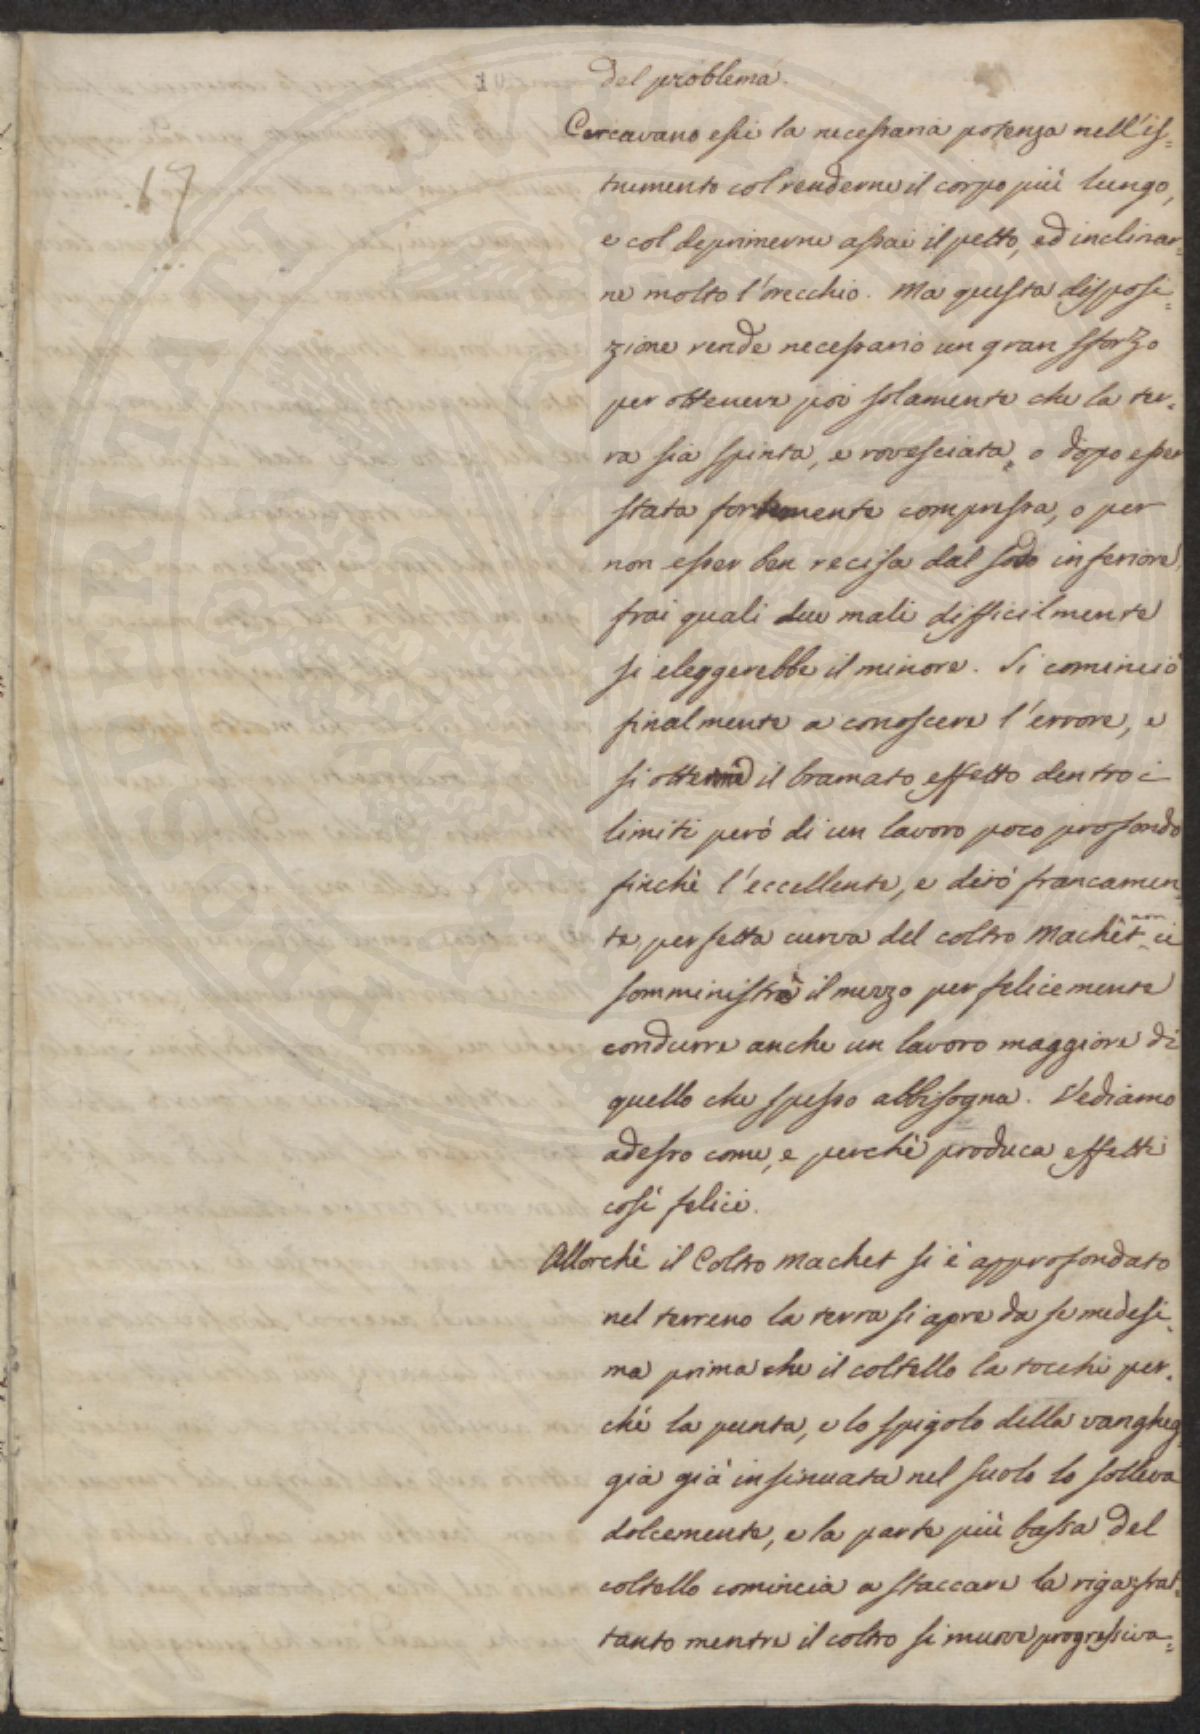 del problema.
17
Cercavano essi la necessaria potenza nell'is=
trumento col renderne il corpo più lungo,
e col deprimerne assai il petto, ed inclinar=
ne molto l'orecchio. Ma questa disposi=
zione rende necessario un gran sforzo
per ottenere poi solamente che la ter=
ra sia spinta, e rovesciata, o dopo esser
stata fortemente compressa, o per
non esser ben recisa dal sodo inferiore,
frai quali due mali difficilmente
si eleggerebbe il minore. Si cominciò
finalmente a conoscere l'errore, e
si ottenne il bramato effetto dentro i
limiti però di un lavoro poco profondo
finchè l'eccellente, e dirò francamen=
te perfetta curva del coltro Machèt non ci
somministrò il mezzo per felicemente
condurre anche un lavoro maggiore di
quello che spesso abbisogna. Vediamo
adesso come, e perchè produca effetti
così felici.
Allorchè il Coltro Machet si è approfondato
nel terreno la terra si apre da se medesi=
ma prima che il coltello la tocchi per=
chè la punta, e lo spigolo della vangheg=
gia già insinuata nel suolo lo solleva
dolcemente, e la parte più bassa del
coltello comincia a staccare la riga; frat=
tanto mentre il coltro si muove progressiva=